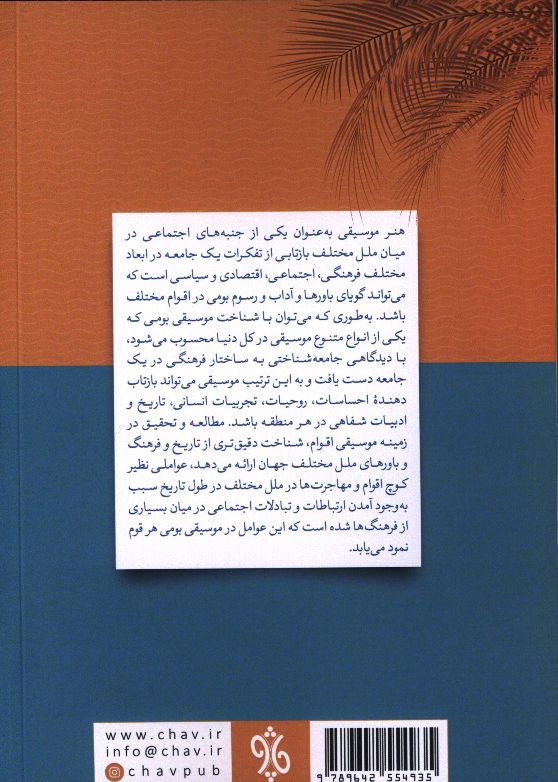 هنر موسیقی به‌عنوان یکی از جنبه‌های اجتماعی در
میان ملل مختلف بازتابی از تفکرات یک جامعه در ابعاد
مختلف فرهنگی، اجتماعی، اقتصادی و سیاسی است که
می‌تواند گویای باورها و آداب و رسوم بومی در اقوام مختلف
باشد. به‌طوری که می‌توان با شناخت موسیقی بومی که
یکی از انواع متنوع موسیقی در کل دنیا محسوب می‌شود،
با دیدگاهی جامعه‌شناختی به ساختار فرهنگی در یک
جامعه دست یافت و به این ترتیب موسیقی می‌تواند بازتاب
دهندهٔ احساسات، روحیات، تجربیات انسانی، تاریخ و
ادبیات شفاهی در هر منطقه باشد. مطالعه و تحقیق در
زمینه موسیقی اقوام، شناخت دقیق‌تری از تاریخ و فرهنگ
و باورهای ملل مختلف جهان ارائه می‌دهد، عواملی نظیر
کوچ اقوام و مهاجرت‌ها در ملل مختلف در طول تاریخ سبب
به‌وجود آمدن ارتباطات و تبادلات اجتماعی در میان بسیاری
از فرهنگ‌ها شده است که این عوامل در موسیقی بومی هر قوم
نمود می‌یابد.
www.chav.ir
info@chav.ir
chavpub
9 789642 554935